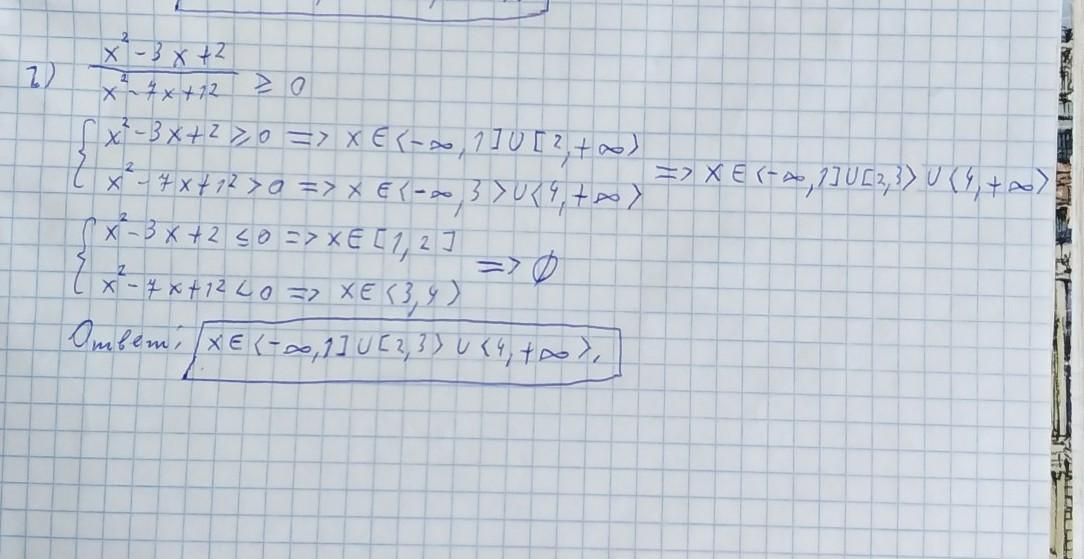 2) (x² - 3x + 2)/(x² - 7x + 12) ≥ 0
{ x² - 3x + 2 ≥ 0 => x ∈ ⟨-∞, 1] ∪ [2, +∞⟩
{ x² - 7x + 12 > 0 => x ∈ ⟨-∞, 3⟩ ∪ ⟨4, +∞⟩ => x ∈ ⟨-∞, 1] ∪ [2, 3⟩ ∪ ⟨4, +∞⟩
{ x² - 3x + 2 ≤ 0 => x ∈ [1, 2]
{ x² - 7x + 12 < 0 => x ∈ ⟨3, 4⟩ => ∅
Ответ: x ∈ ⟨-∞, 1] ∪ [2, 3⟩ ∪ ⟨4, +∞⟩.